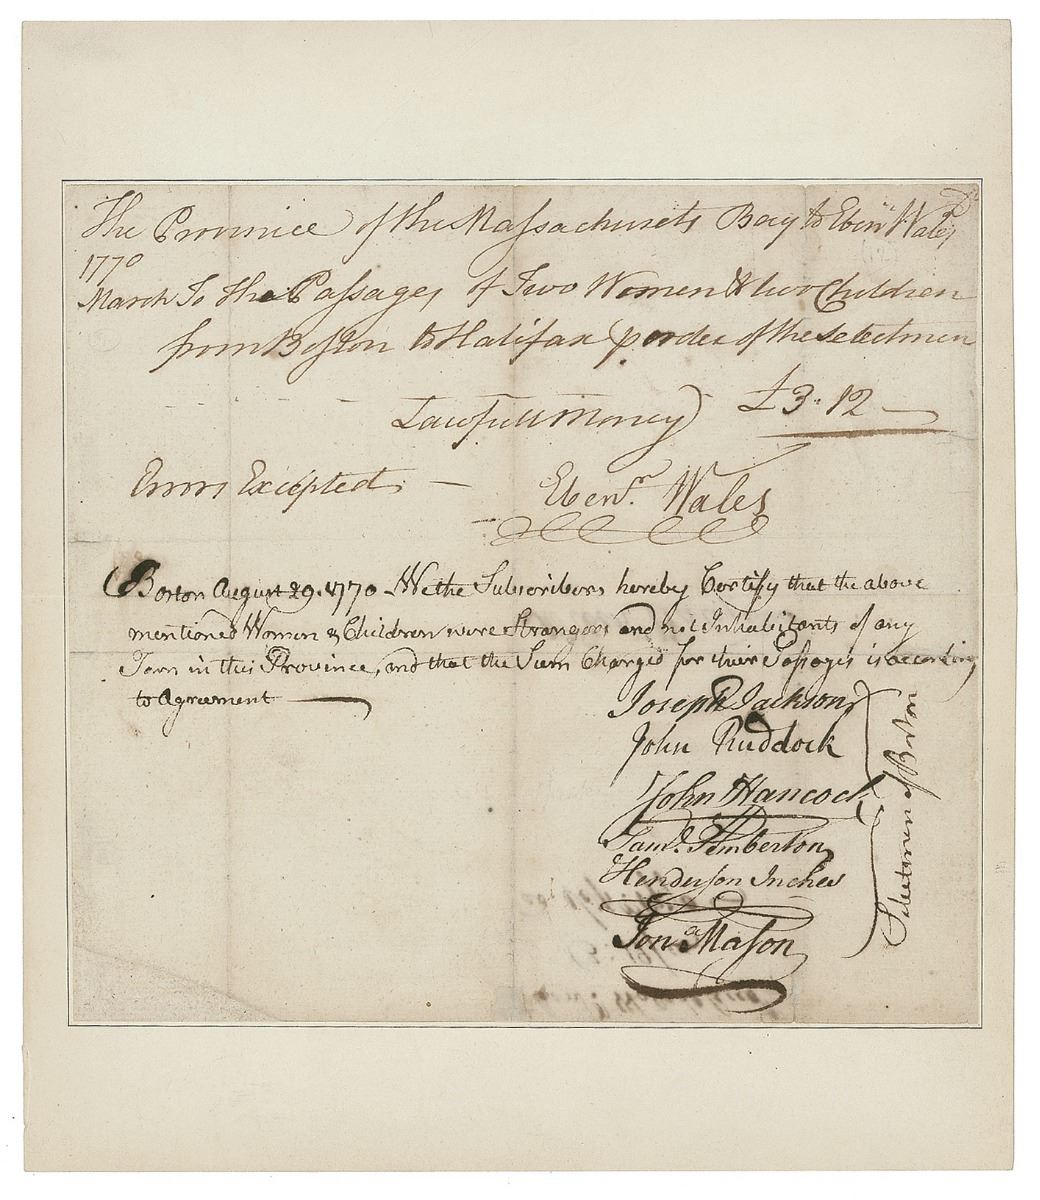 The Province of the Massachusets Bay to Eben.r Wales Dr
1770
March To the Passages of Two Women & two Children
from Boston to Halifax p order of the Selectmen
Lawfull Money) £3..12
Errors Excepted
Eben.r Wales
Boston August 29. 1770 We the Subscribers hereby Certify that the above
mentioned Women & Children were Strangers and not Inhabitants of any
Town in this Province, and that the Sum Charged for their Passages is according
to Agreement
Joseph Jackson
John Ruddock
John Hancock
Sam.l Pemberton
Henderson Inches
Jon.a Mason
Selectmen of Boston